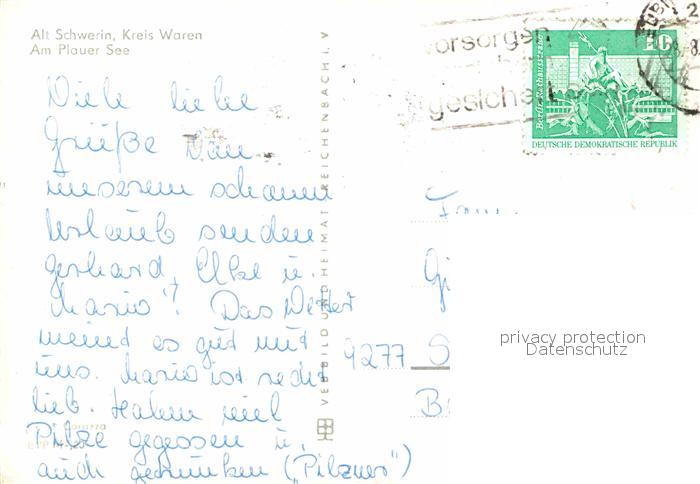 Alt Schwerin, Kreis Waren
Am Plauer See
Viele liebe
Grüße von
unserem schönen
Urlaub senden
Gerhard, Elke u.
Mario! Das Wetter
meint es gut mit
uns. Mario ist recht
lieb. Haben viel
Pilze gegessen u.
auch getrunken ("Pilzner")
VERBILD UND HEIMAT REICHENBACH I. V
vorsorgen
gesicher
10
Berlin, Rathausstraße
DEUTSCHE DEMOKRATISCHE REPUBLIK
Fam
9277 S
privacy protection
Datenschutz